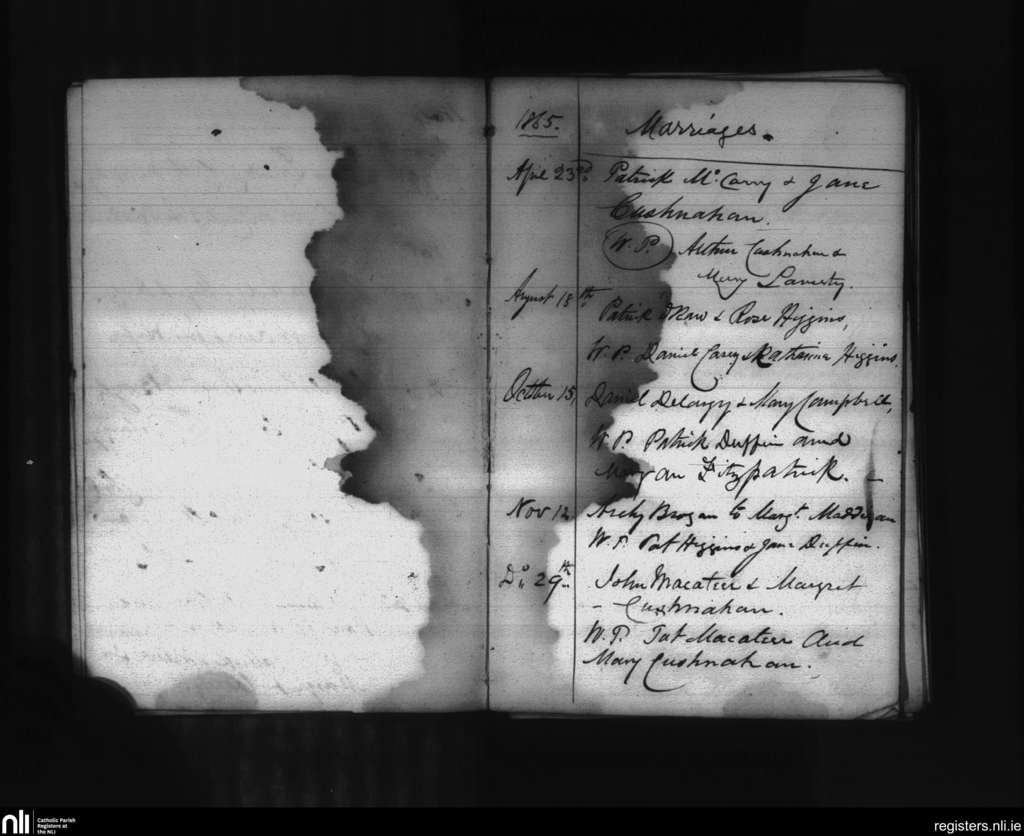 1865. Marriages.
April 23rd Patrick Mc. Carry & Jane
Cushnahan.
W. P. Arthur Cushnahan &
Mary Laverty.
August 18th Patrick & Rose Higgins,
W. P. Daniel Casey & Katherine Higgins
October 15, Daniel Delargy & Mary Campbell,
W. P. Patrick Duffin and
Fitzpatrick.
Nov 12 Archy Brogan to Margt. Maddigan
W. P. Pat Higgins & Jane Duffin.
Do. 29th John Macateer & Margret
- Cushnahan.
W. P. Pat Macateer And
Mary Cushnahan.
nli Catholic Parish
Registers at
the NLI
registers.nli.ie